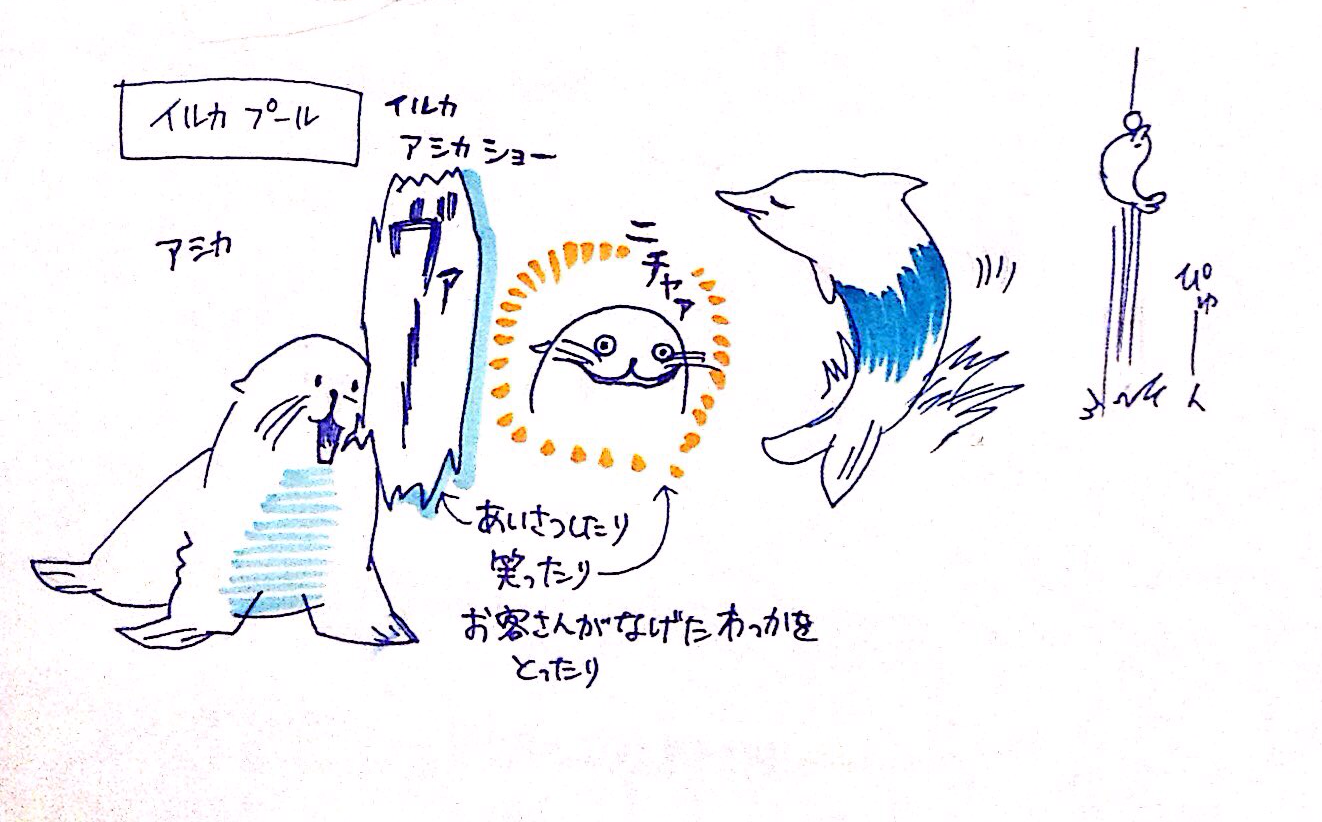 イルカ プール
イルカ
アシカ ショー
アシカ
ニチャァ
ぴゅーん
あいさつしたり
笑ったり
お客さんがなげた わっかを
とったり